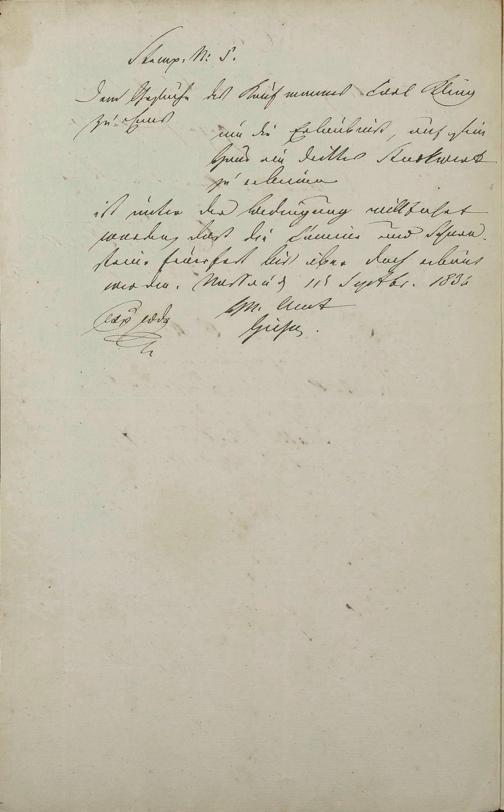 Stemp. N: 5.
Dem Gesuche des Kaufmanns Carl
zu
um die Erlaubnis, auf sein
Haus ein drittes Stockwerk
zu erbauen
ist unter der Bedingung willfahrt
worden, daß die Camine und Schorn-
steine feuerfest bis über Dach erbaut
werden. 11t Septbr. 183
Amt